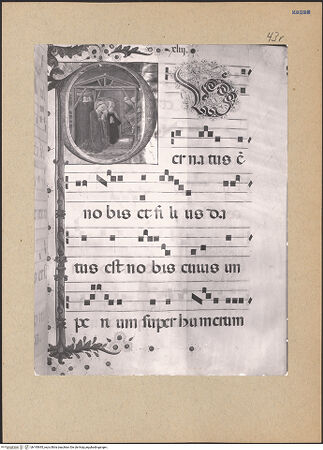 43r
xliij.
er na tus ē
no bis et fi li us da
tus est no bis cuius im
pe ri um super humerum